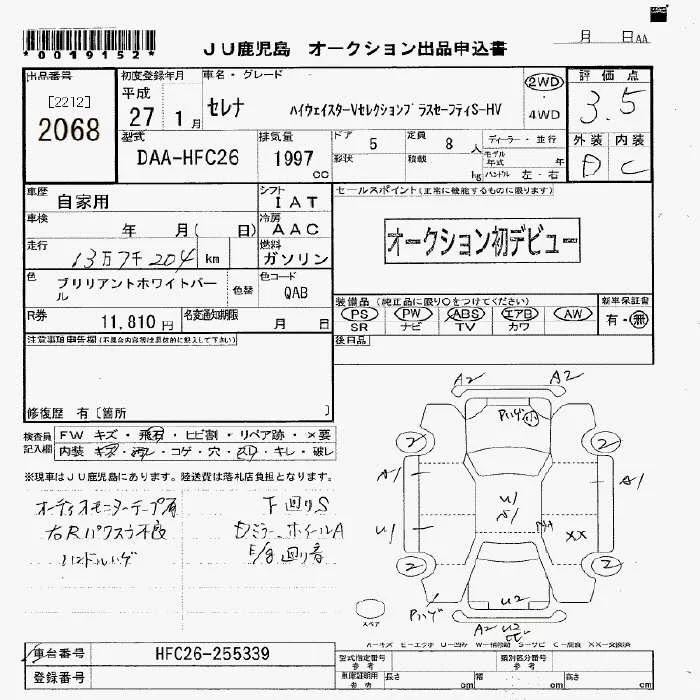 *0019152*
JU鹿児島 オークション出品申込書
月 日AA
出品番号
[2212]
2068
初度登録年月
平成
27 1月
車名・グレード
セレナ ハイウェイスターVセレクションプラスセーフティS-HV
2WD
・
4WD
評価点
3.5
型式
DAA-HFC26
排気量
1997
cc
ドア 5
定員 8 人
形状
積載 kg
ディーラー・並行
モデル年式 年
ハンドル 左・右
外装 内装
D C
車歴
自家用
シフト
IAT
車検
年 月( 日)
冷房
AAC
走行
13万7千204 km
燃料
ガソリン
色
ブリリアントホワイトパール
色替
色コード
QAB
R券
11,810円
名変通知期限
月 日
セールスポイント(正常に機能するものに限ります)
オークション初デビュー
装備品(純正品に限り○をつけてください)
PS PW ABS エアB AW
SR ナビ TV カワ
新車保証書
有・無
後日品
注意事項申告欄(不具合内容等は具体的に記入して下さい)
修復歴 有〔箇所 〕
検査員記入欄
FW キズ・飛石・ヒビ割・リペア跡・×要
内装 キズ・汚レ・コゲ・穴・スリ・キレ・破レ
※現車はJU鹿児島にあります。陸送費は落札店負担となります。
オーディオモニターテープ有
右Rパワスラ不良
ハンドルハゲ
下回りS
ドミラー、ホイールA
E/g回り音
A2 A2
Pハゲ 小
2 2
A1 A1
U1
A1
U1
XX
2 2
U2
Pハゲ
A2 U2
スペア
A－キズ E－エクボ U－凹み W－補修跡 S－サビ C－腐食 XX－交換済
車台番号
HFC26-255339
登録番号
型式指定番号
参考
類別区分番号
参考
車庫証明用
参考
長さ cm
幅 cm
高さ cm